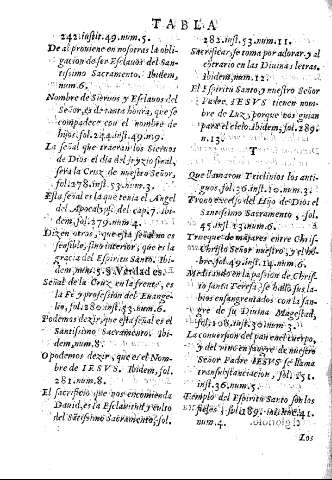 TABLA
242. instit. 49. num. 5.
De al proviene en nosotros la obli-
gacion de ser Esclavos del San-
tissimo Sacramento. Ibidem,
num. 6.
Nombre de Siervos y Esclavos del
Señor, es de tanta honra, que se
compadece con el nombre de
hijos, fol. 244. inst. 49. n. 9.
La señal que traeràn los Siervos
de Dios el dia del juyzio final,
serà la Cruz de nuestro Señor,
fol. 278. inst. 53. num. 3.
Esta señal es la que tenia el Angel
del Apocalyps. del cap. 7. Ibi-
dem, fol. 279. num. 4.
Dizen otros, que esta señal no es
sensible, sino interior, que es la
gracia del Espiritu Santo. Ibi-
dem, num. 5. § Verdad es.
Señal de la Cruz en la frente, es
la Fè y profession del Euange-
lio, fol. 280. inst. 53. num. 6.
Podemos dezir, que esta señal es el
Santissimo Sacramento. Ibi-
dem, num. 8.
O podemos dezir, que es el Nom-
bre de IESVS. Ibidem, fol.
281. num. 8.
El sacrificio que nos encomienda
David, es la Esclavitud y culto
del Santissimo Sacramento, fol.
282. inst. 53. num. 11.
Sacrificar, se toma por adorar, y al
contrario en las Divinas letras.
Ibidem, num. 12.
El Espiritu Santo, y nuestro Señor
Padre IESVS tienen nom-
bre de Luz, porque nos guian
para el cielo. Ibidem, fol. 289.
n. 13.
T
Que llamaron Triclinios los anti-
guos, fol. 26. inst. 10. num. 2.
Trono excelso del Hijo de Dios el
Santissimo Sacramento, fol.
45. inst. 13. num. 6.
Trueque de manjares entre Chris-
Christo Señor nuestro, y el hom-
bre, fol. 49. inst. 14. num. 6.
Meditando en la passion de Chris-
to santa Teresa, se hallò sus la-
bios ensangrentados con la san-
gre de su Divina Magestad,
fol. 108. inst. 30. num. 3.
La conversion del pan en el cuerpo,
y del vino en sangre de nuestro
Señor Padre IESVS se llama
transubstanciacion, fol. 151.
inst. 36. num. 5.
Templo del Espiritu Santo son los
fieles, fol. 189. inst. 41.
num. 4.
Los